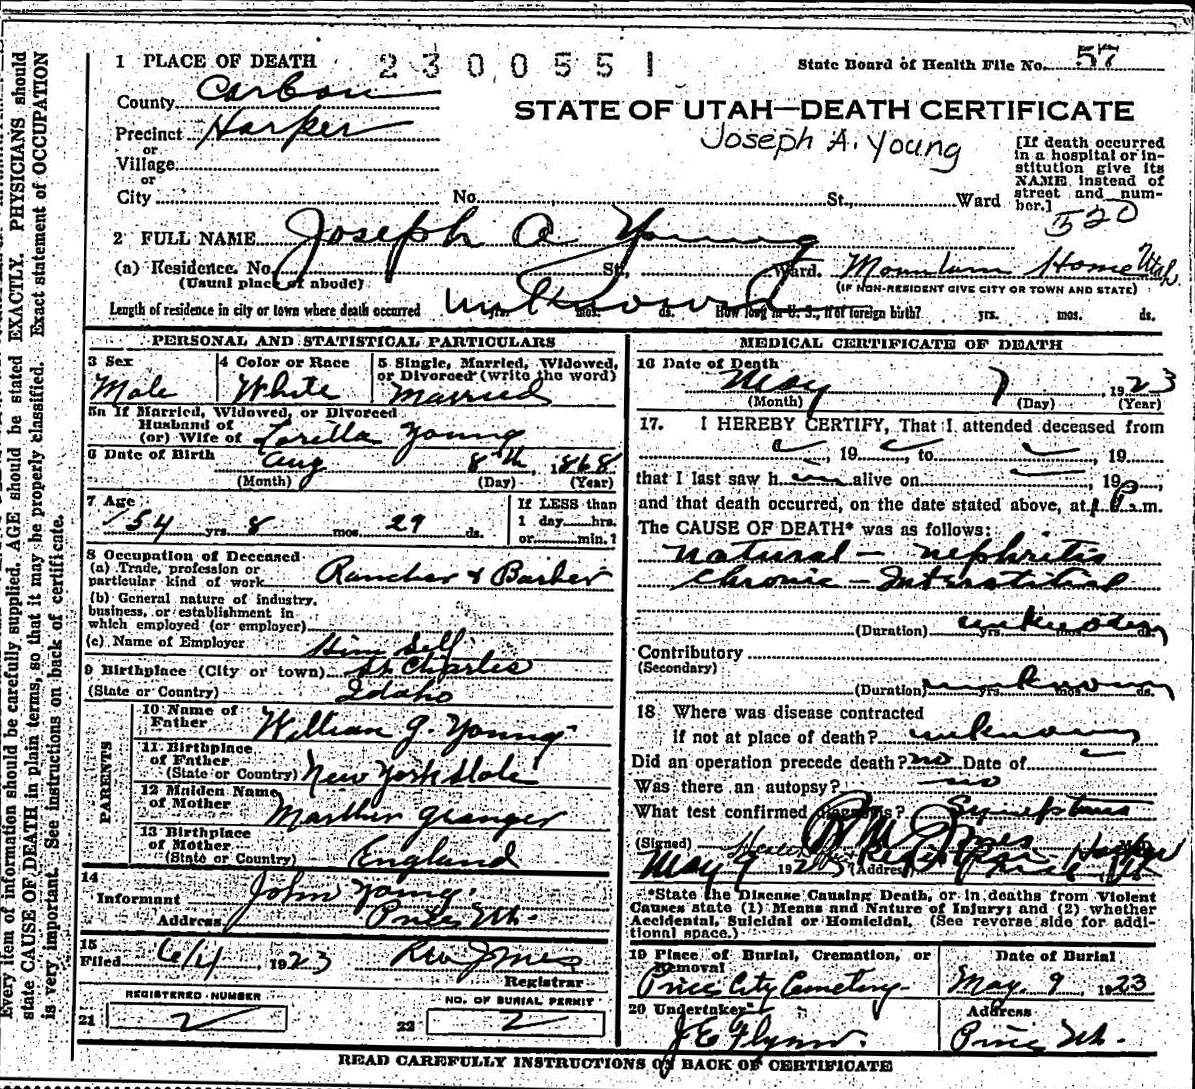 1 PLACE OF DEATH 2300551 State Board of Health File No. 57
County Carbon
STATE OF UTAH—DEATH CERTIFICATE
Precinct Harper
Joseph A. Young
or
Village
or
City No. St., Ward
[If death occurred
in a hospital or in-
stitution give its
NAME instead of
street and num-
ber.]
520
2 FULL NAME Joseph A Young
(a) Residence. No. St., Ward. Mountain Home Utah
(Usual place of abode) (IF NON-RESIDENT GIVE CITY OR TOWN AND STATE)
Length of residence in city or town where death occurred unknown yrs. mos. ds. How long in U. S., if of foreign birth? yrs. mos. ds.
PERSONAL AND STATISTICAL PARTICULARS
3 Sex
Male
4 Color or Race
White
5 Single, Married, Widowed,
or Divorced (write the word)
Married
5a If Married, Widowed, or Divorced
Husband of
(or) Wife of Lorilla Young
6 Date of Birth Aug 8th, 1868
(Month) (Day) (Year)
7 Age
54 yrs. 8 mos. 29 ds.
If LESS than
1 day hrs.
or min.?
8 Occupation of Deceased
(a) Trade, profession or
particular kind of work Rancher & Barber
(b) General nature of industry,
business, or establishment in
which employed (or employer)
(c) Name of Employer Him Self
9 Birthplace (City or town) St Charles
(State or Country) Idaho
PARENTS
10 Name of
Father William G. Young
11 Birthplace
of Father
(State or Country) New York State
12 Maiden Name
of Mother Marther Granger
13 Birthplace
of Mother
(State or Country) England
14
Informant John Young
Address Price Ut.
15
Filed 6/4, 1923
Registrar
REGISTERED NUMBER
21 2
NO. OF BURIAL PERMIT
22 2
MEDICAL CERTIFICATE OF DEATH
16 Date of Death
May 7, 1923
(Month) (Day) (Year)
17. I HEREBY CERTIFY, That I attended deceased from
, 19 to , 19
that I last saw h alive on , 19 ,
and that death occurred, on the date stated above, at m.
The CAUSE OF DEATH* was as follows:
natural - nephritis
chronic - Interstitial
(Duration) unknown yrs. mos. ds.
Contributory
(Secondary)
(Duration) unknown yrs. mos. ds.
18 Where was disease contracted
if not at place of death? unknown
Did an operation precede death? no Date of
Was there an autopsy? no
What test confirmed diagnosis? Symptoms
(Signed)
May 9 192 (Address)
*State the Disease Causing Death, or in deaths from Violent
Causes state (1) Means and Nature of Injury; and (2) whether
Accidental, Suicidal or Homicidal. (See reverse side for addi-
tional space.)
19 Place of Burial, Cremation, or
Removal
Price City Cemetery
Date of Burial
May 9, 1923
20 Undertaker
J E Flynn.
Address
Price Ut.
READ CAREFULLY INSTRUCTIONS ON BACK OF CERTIFICATE
Every item of information should be carefully supplied. AGE should be stated EXACTLY. PHYSICIANS should
state CAUSE OF DEATH in plain terms, so that it may be properly classified. Exact statement of OCCUPATION
is very important. See instructions on back of certificate.